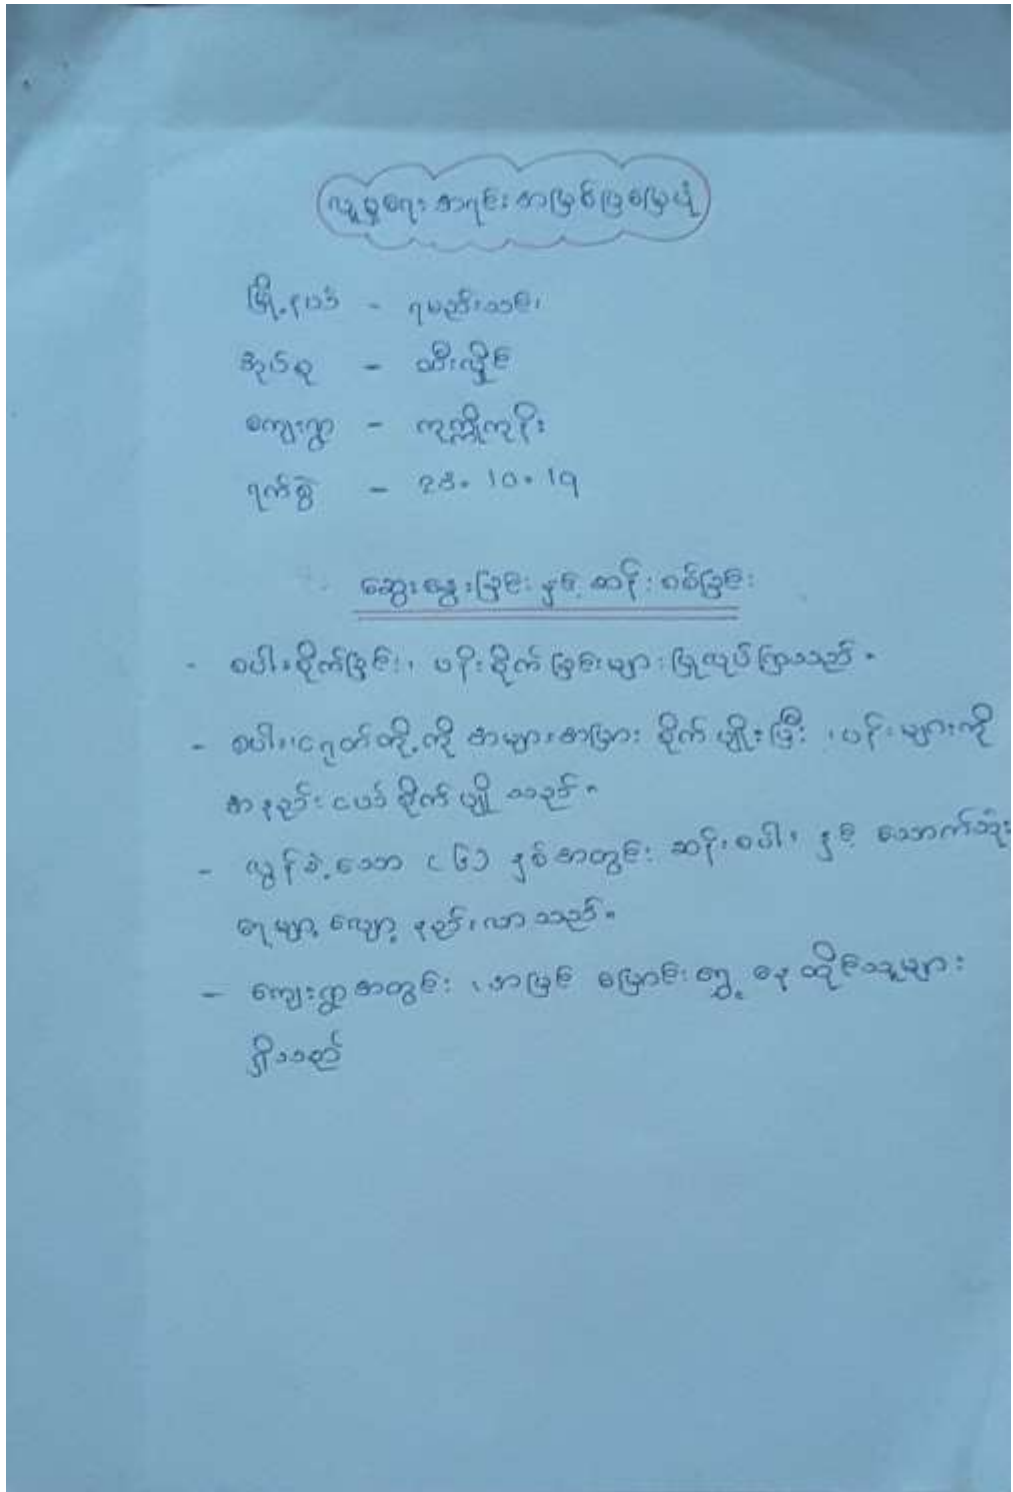 လူမှုရေး အရင်း အမြစ်ပြမြေပုံ
မြို့နယ် - ရမည်းသင်း
အုပ်စု - သီးလှိုင်
ကျေးရွာ - ကုက္ကိုကုန်း
ရက်စွဲ - 23. 10. 19
ဆွေးနွေးခြင်း နှင့် ဆန်းစစ်ခြင်း
- စပါးစိုက်ခြင်း၊ ပန်းစိုက်ခြင်းများ ပြုလုပ်ကြသည်။
- စပါး၊ ငရုတ်တို့ကို အများအပြား စိုက်ပျိုးပြီး ၊ ပန်းများကို
အနည်းငယ် စိုက်ပျိုးသည်။
- လွန်ခဲ့သော (၆) နှစ်အတွင်း ဆန်းစပါး နှင့် သောက်သုံး
ရေများ လျော့နည်းလာသည်။
- ကျေးရွာအတွင်း ၊ အပြင် ပြောင်းရွှေ့ နေထိုင်သူများ
ရှိသည်